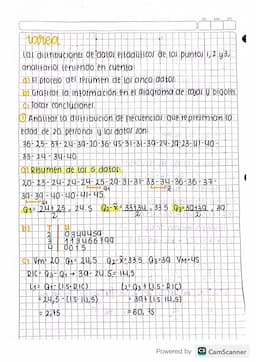 tarea
Las distribuciones de datos estadísticos de los puntos 1, 2 y 3,
analizarlo teniendo en cuenta
a) El proceso del resumen de los cinco datos.
b) Graficar la información en el diagrama de cajas y bigotes
c) Sacar conclusiones.
① Analizar la distribución de frecuencias que representan la
edad de 20 personas y los datos son
36-25-37-24-39-20-36-45-31-31-39-24-29-23-41-40-
33-24-34-40
a) Resumen de los 5 datos.
20-23-24-24-24-25-29-31-31-33-34-36-36-37-
39-39-40-40-41-45.
Q1= 24+25 = 24.5 Q2=x̄= 33+34 = 33.5 Q3= 39+39 = 39
2 2 2
b)
c) Vm= 20 Q1= 24,5 Q2=x̄=33.5 Q3=39 VM=45
RIC= Q3-Q1 → 39-24.5= 14,5
= 24,5-(1.5·14,5) = 39+(1.5·14,5)
= 2,75 = 60,75
Powered by CS CamScanner